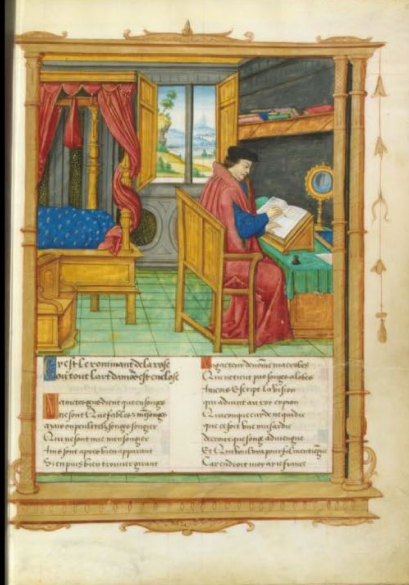 Cy est le rommant de la rose
Ou tout lart damo est enclose
Maintes gens dient que en songes
Ne sont Que fables & mensonges
Mais on peult telz songes songier
Qui ne sont mie mensongier
Ains sont apres bien apparant
Si en puis bien trouver garant
Ung acteur nomme macrobes
Qui ne tient pas songes a lobes
escript la vision
qui advint au roy cipion
Quiconque cuide ne qui die
que ce soit une musardie
de croire que songe adviengne
Et Qui vouldra pour fol men tiengne
Car endroit moy ay ie fiance